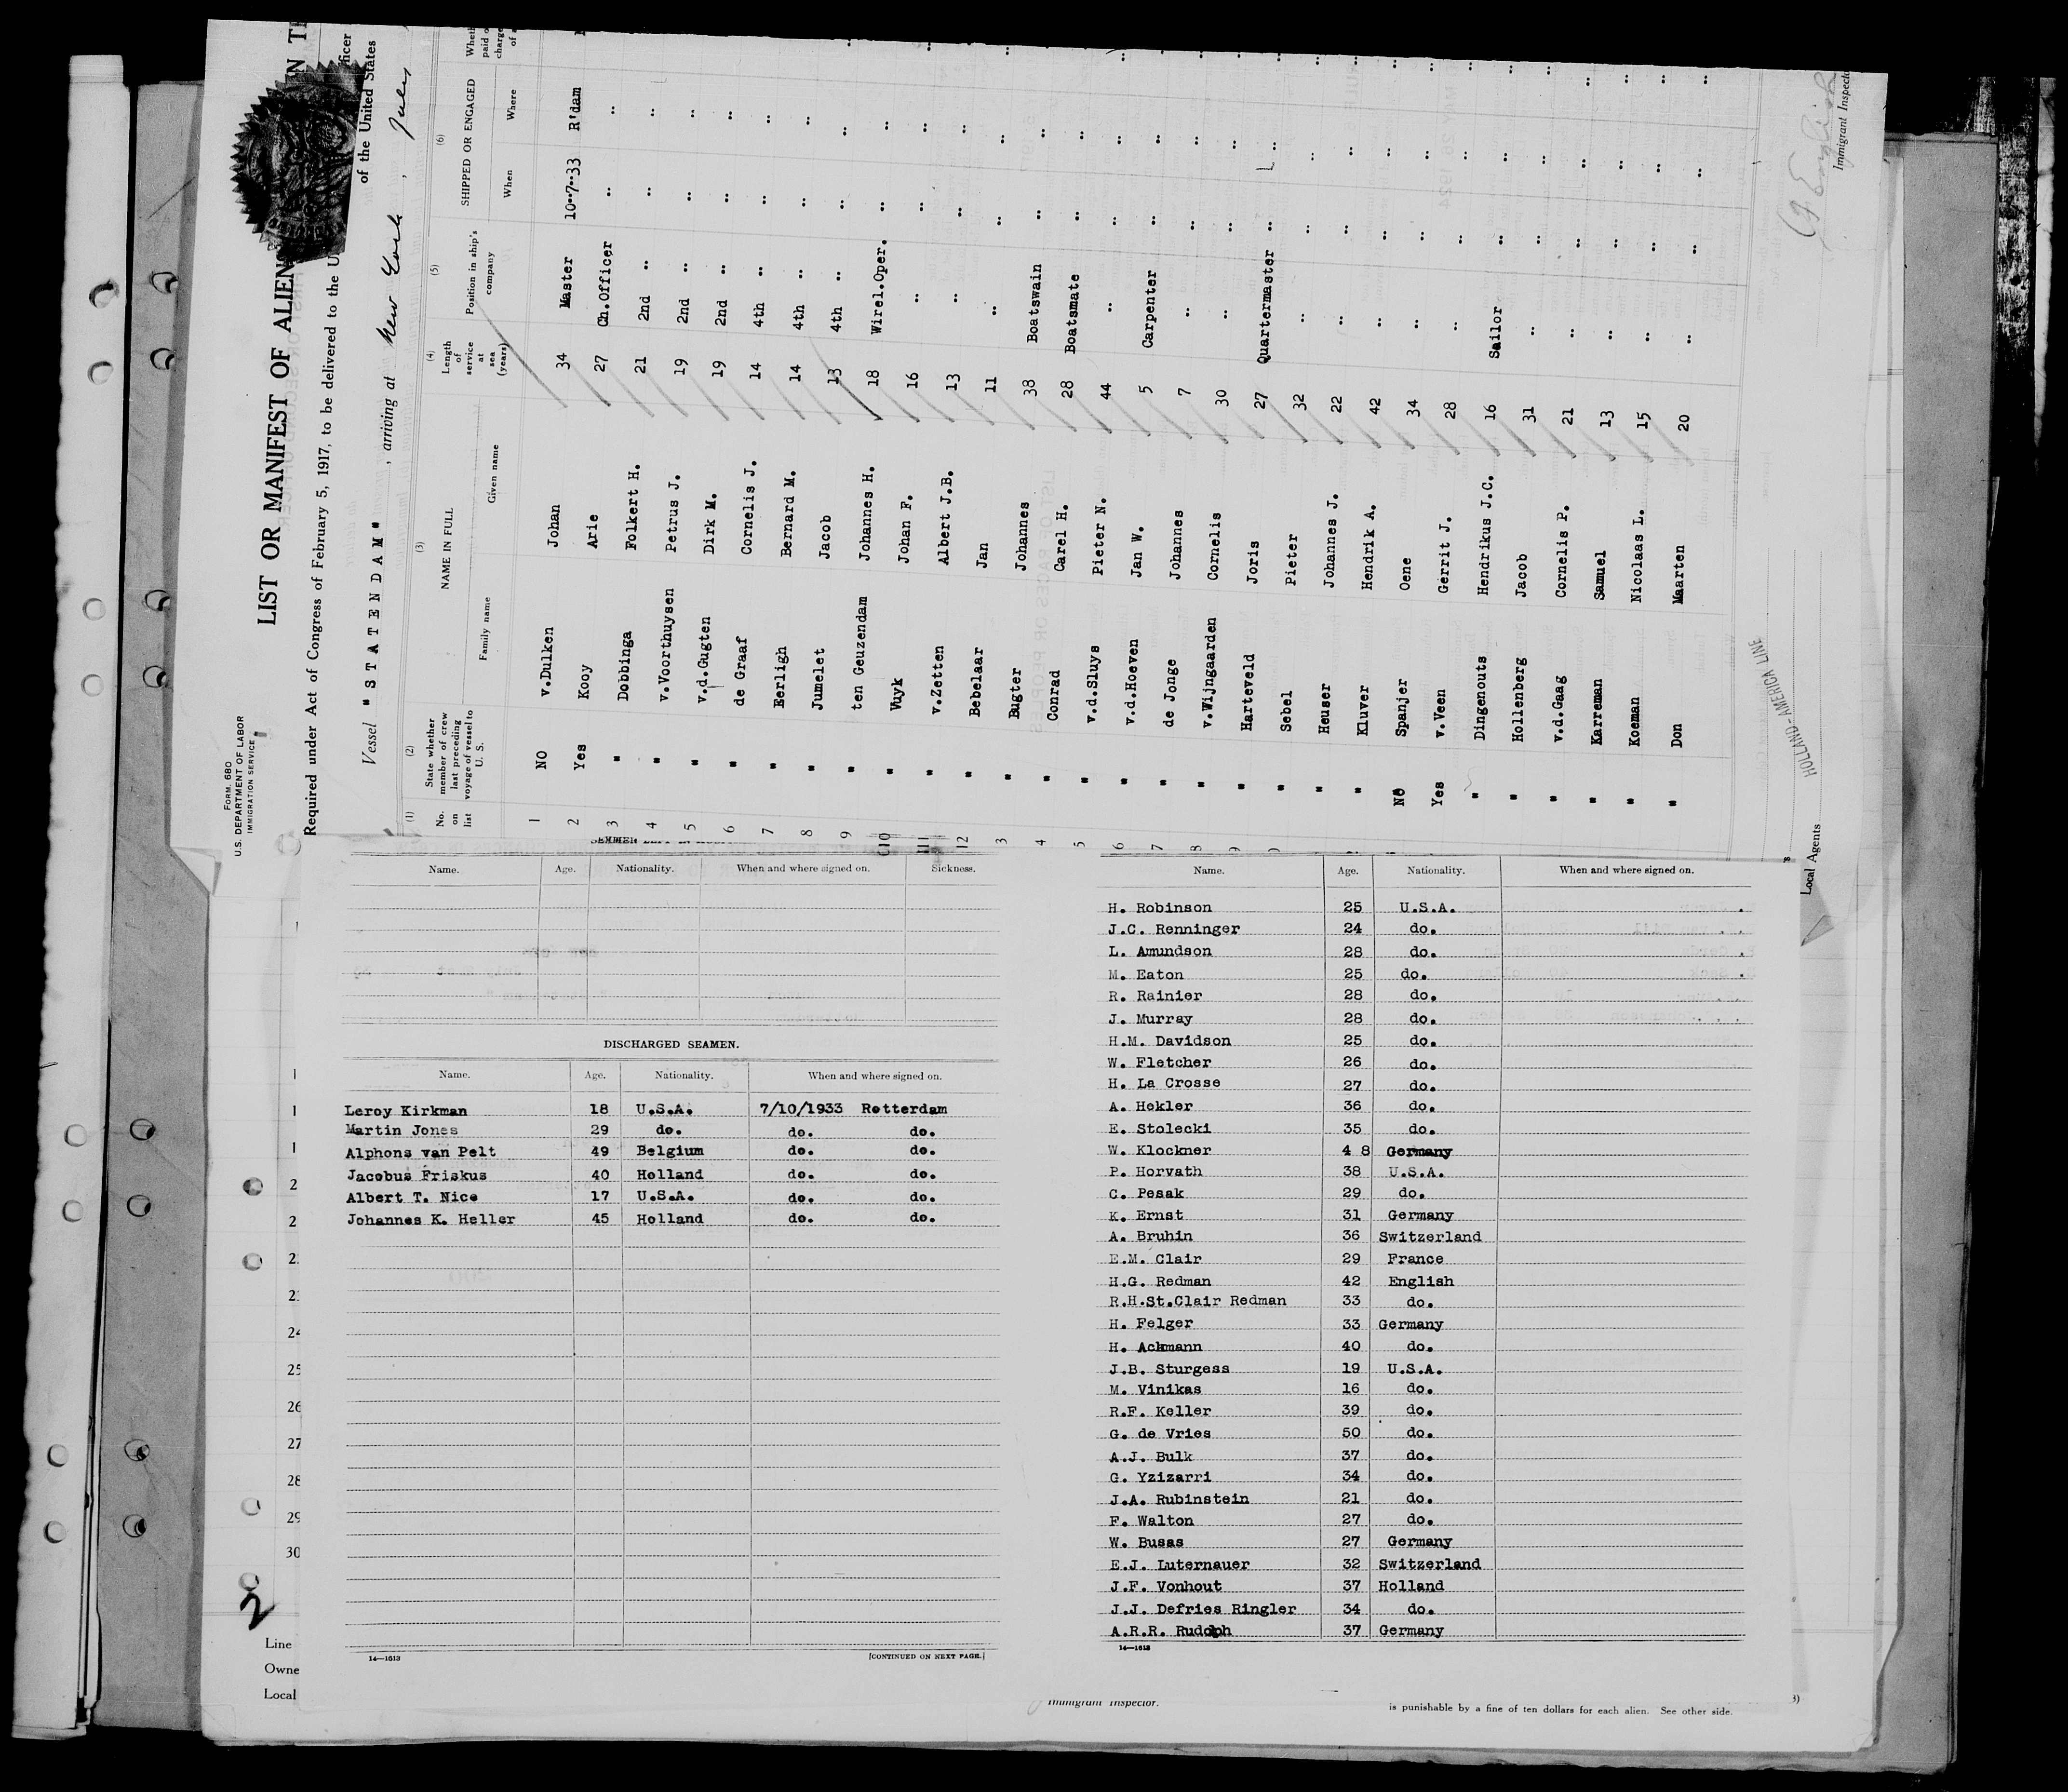 FORM 680
U.S. DEPARTMENT OF LABOR
IMMIGRATION SERVICE
LIST OR MANIFEST OF ALIENS
Required under Act of Congress of February 5, 1917, to be delivered to the U
of the United States
Vessel "STATENDAM", arriving at New York, July
(1) (2) (3) (4) (5) (6)
No. on list
State whether member of crew last preceding voyage of vessel to U. S.
NAME IN FULL
Family name Given name
Length of service at sea (years)
Position in ship's company
SHIPPED OR ENGAGED
When Where
1 NO v.Dulken Johan 34 Master 10"7"33 R'dam
2 Yes Kooy Arie 27 Ch.Officer " "
3 " Dobbinga Folkert H. 21 2nd " " "
4 " v.Voorthuysen Petrus J. 19 2nd " " "
5 " v.d.Gugten Dirk M. 19 2nd " " "
6 " de Graaf Cornelis J. 14 4th " " "
7 " Eerligh Bernard M. 14 4th " " "
8 " Jumelet Jacob 13 4th " " "
9 " ten Geuzendam Johannes H. 18 Wirel.Oper. " "
10 " Vuyk Johan F. 16 " " "
11 " v.Zetten Albert J.B. 13 " " "
12 " Bebelaar Jan 11 " " "
3 " Bugter Johannes 38 Boatswain " "
4 " Conrad Carel H. 28 Boatsmate " "
5 " v.d.Sluys Pieter N. 44 " " "
6 " v.d.Hoeven Jan W. 5 Carpenter " "
7 " de Jonge Johannes 7 " " "
8 " v.Wijngaarden Cornelis 30 " " "
9 " Harteveld Joris 27 Quartermaster " "
" Sebel Pieter 32 " " "
" Heuser Johannes J. 22 " " "
" Kluver Hendrik A. 42 " " "
No Spanjer Oene 34 " " "
Yes v.Veen Gerrit J. 28 " " "
" Dingenouts Hendrikus J.C. 16 Sailor " "
" Hollenberg Jacob 31 " " "
" v.d.Gaag Cornelis P. 21 " " "
" Karreman Samuel 13 " " "
" Koeman Nicolaas L. 15 " " "
" Don Maarten 20 " " "
HOLLAND-AMERICA LINE
Local Agents
Immigrant Inspecto
Name. Age. Nationality. When and where signed on. Sickness.
DISCHARGED SEAMEN.
Name. Age. Nationality. When and where signed on.
Leroy Kirkman 18 U.S.A. 7/10/1933 Rotterdam
Martin Jones 29 do. do. do.
Alphons van Pelt 49 Belgium do. do.
Jacobus Friskus 40 Holland do. do.
Albert T. Nice 17 U.S.A. do. do.
Johannes K. Heller 45 Holland do. do.
14—1613 [CONTINUED ON NEXT PAGE.]
Name. Age. Nationality. When and where signed on.
H. Robinson 25 U.S.A.
J.C. Renninger 24 do.
L. Amundson 28 do.
M. Eaton 25 do.
R. Rainier 28 do.
J. Murray 28 do.
H.M. Davidson 25 do.
W. Fletcher 26 do.
H. La Crosse 27 do.
A. Hekler 36 do.
E. Stolecki 35 do.
W. Klockner 4 8 Germany
P. Horvath 38 U.S.A.
C. Pesak 29 do.
K. Ernst 31 Germany
A. Bruhin 36 Switzerland
E.M. Clair 29 France
H.G. Redman 42 English
R.H.St.Clair Redman 33 do.
H. Felger 33 Germany
H. Ackmann 40 do.
J.B. Sturgess 19 U.S.A.
M. Vinikas 16 do.
R.F. Keller 39 do.
G. de Vries 50 do.
A.J. Bulk 37 do.
G. Yzizarri 34 do.
J.A. Rubinstein 21 do.
F. Walton 27 do.
W. Busas 27 Germany
E.J. Luternauer 32 Switzerland
J.F. Vonhout 37 Holland
J.J. Defries Ringler 34 do.
A.R.R. Rudolph 37 Germany
14—1613
24
25
26
27
28
29
30
2
Line
Owne
Local
Immigrant Inspector.
is punishable by a fine of ten dollars for each alien. See other side.